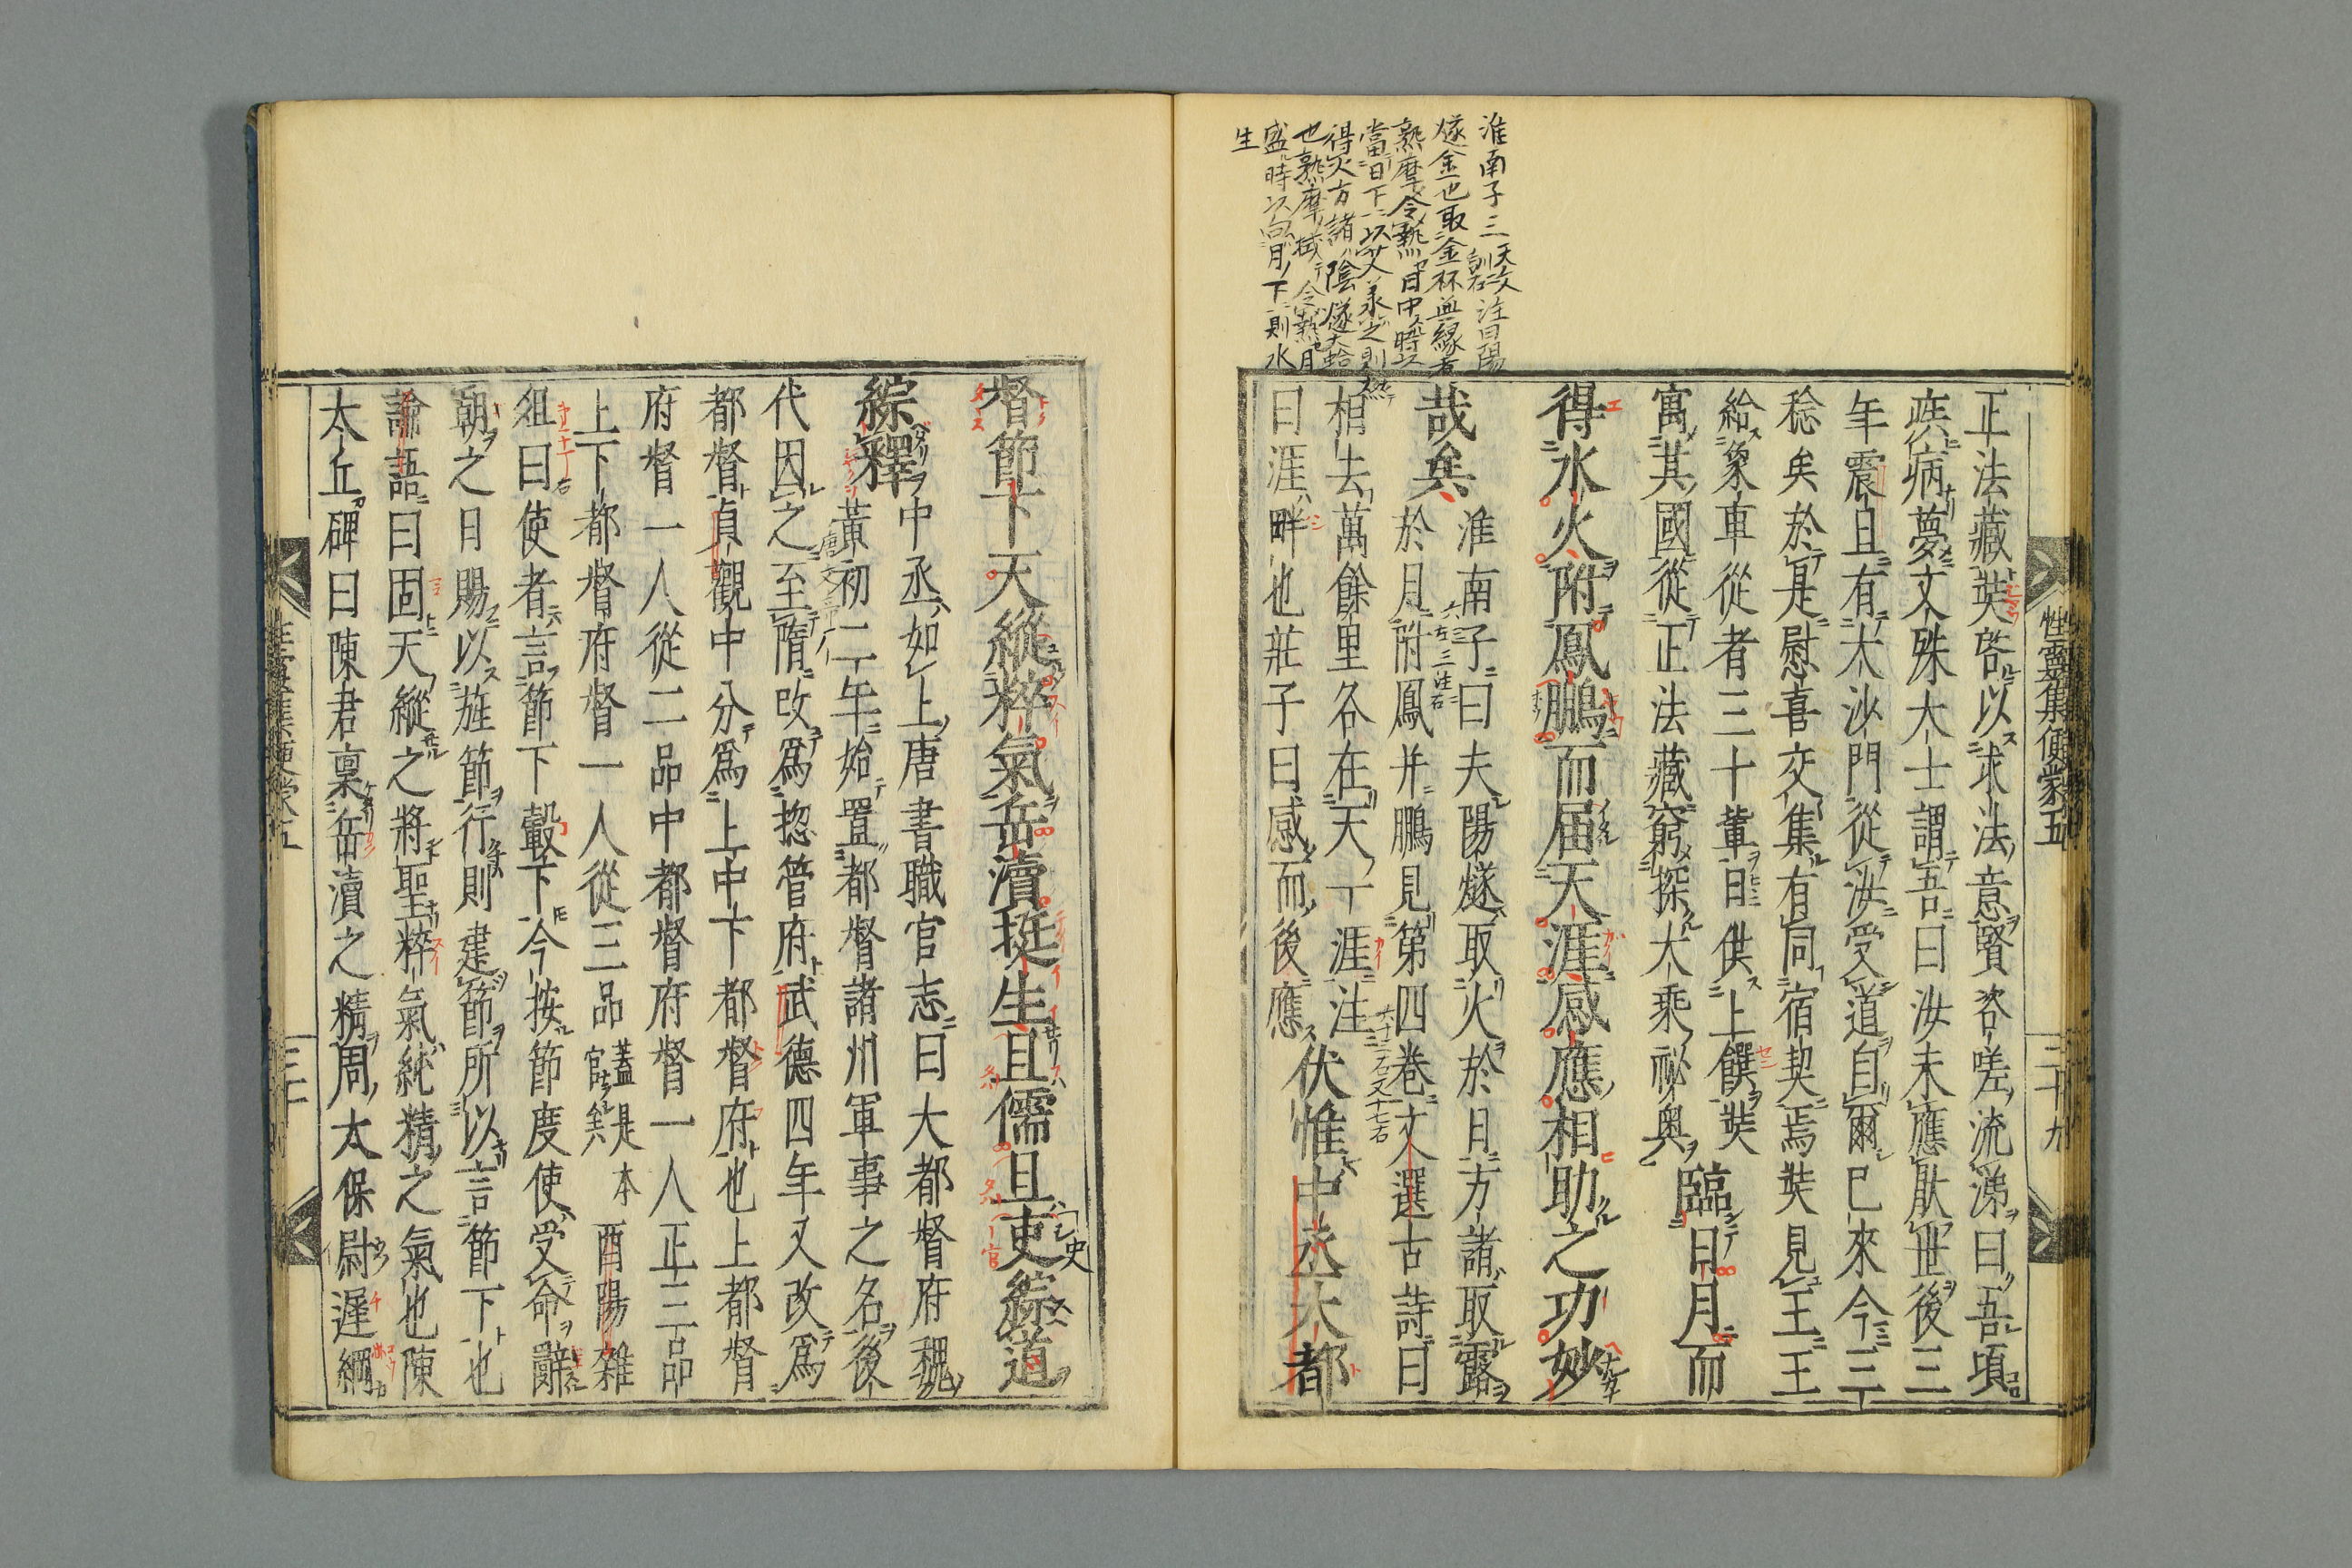 淮南子三天文訓右注曰陽
燧金也取金杯無緣者
熟摩令熱日中時以
當日下以艾承之則燃
得火方諸陰燧大蛤
也熟摩拭令熱月
盛時以向月下則水
生
性靈集便蒙五
三十九
正法藏奘啓以求法意賢咨嗟流涕曰吾頃
疾病夢文殊大士謂吾曰汝未應厭世後三
年震旦有大沙門從汝受道自爾已來今三
稔矣於是慰喜交集有同宿契焉奘見王王
給象車從者三十輩日供上饌奘
寓其國從正法藏窮探大乘祕奧
臨日月而
得水火附鳳鵬而届天涯感應相助之功妙
哉矣
淮南子曰夫陽燧取火於日方諸取露
於月附鳳并鵬見第四卷文選古詩曰
相去萬餘里各在天一涯注
曰涯畔也莊子曰感而後應
伏惟中丞大都
督節下天縱粹氣岳瀆挺生且儒且吏綜道
綜釋
中丞如上唐書職官志曰大都督府魏
黃初二年始置都督諸州軍事之名後
代因之至隋改爲揔管府武德四年又改爲
都督貞觀中分爲上中下都督府也上都督
府督一人從二品中都督府督一人正三品
上下都督府督一人從三品
蓋是本
官
酉陽雜
俎曰使者言節下轂下今按節度使受命辭
朝之日賜以旌節行則建節所以言節下也
論語曰固天縱之將聖粹氣統精之氣也陳
太丘碑曰陳君稟岳瀆之精周太保尉遲綱